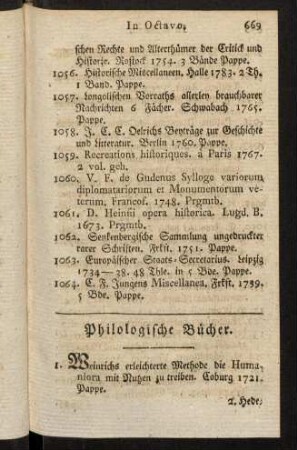 In Octavo. 669
schen Rechte und Alterthümer der Critick und
Historie. Rostock 1754. 3 Bände Pappe.
1056. Historische Miscellaneen. Halle 1783. 2 Th.
1 Band. Pappe.
1057. Longolischen Vorraths allerley brauchbarer
Nachrichten 6 Fächer. Schwabach 1765.
Pappe.
1058. J. C. C. Oelrichs Beyträge zur Geschichte
und Litteratur. Berlin 1760. Pappe.
1059. Recreations historiques. à Paris 1767.
2 vol. geh.
1060. V. F. de Gudenus Sylloge variorum
diplomatariorum et Monumentorum ve-
terum, Francof. 1748. Prgmtb.
1061. D. Heinsii opera historica. Lugd. B.
1673. Prgmtb.
1062. Senkenbergische Sammlung ungedruckter
rarer Schriften. Frkft. 1751. Pappe.
1063. Europäischer Staats-Secretarius. Leipzig
1734—38. 48 Thle. in 5 Bde. Pappe.
1064. C. F. Jungens Miscellanea. Frkft. 1739.
5 Bde. Pappe.
Philologische Bücher.
1. Weinrichs erleichterte Methode die Huma-
niora mit Nutzen zu treiben. Coburg 1721.
Pappe.
2. Hede,